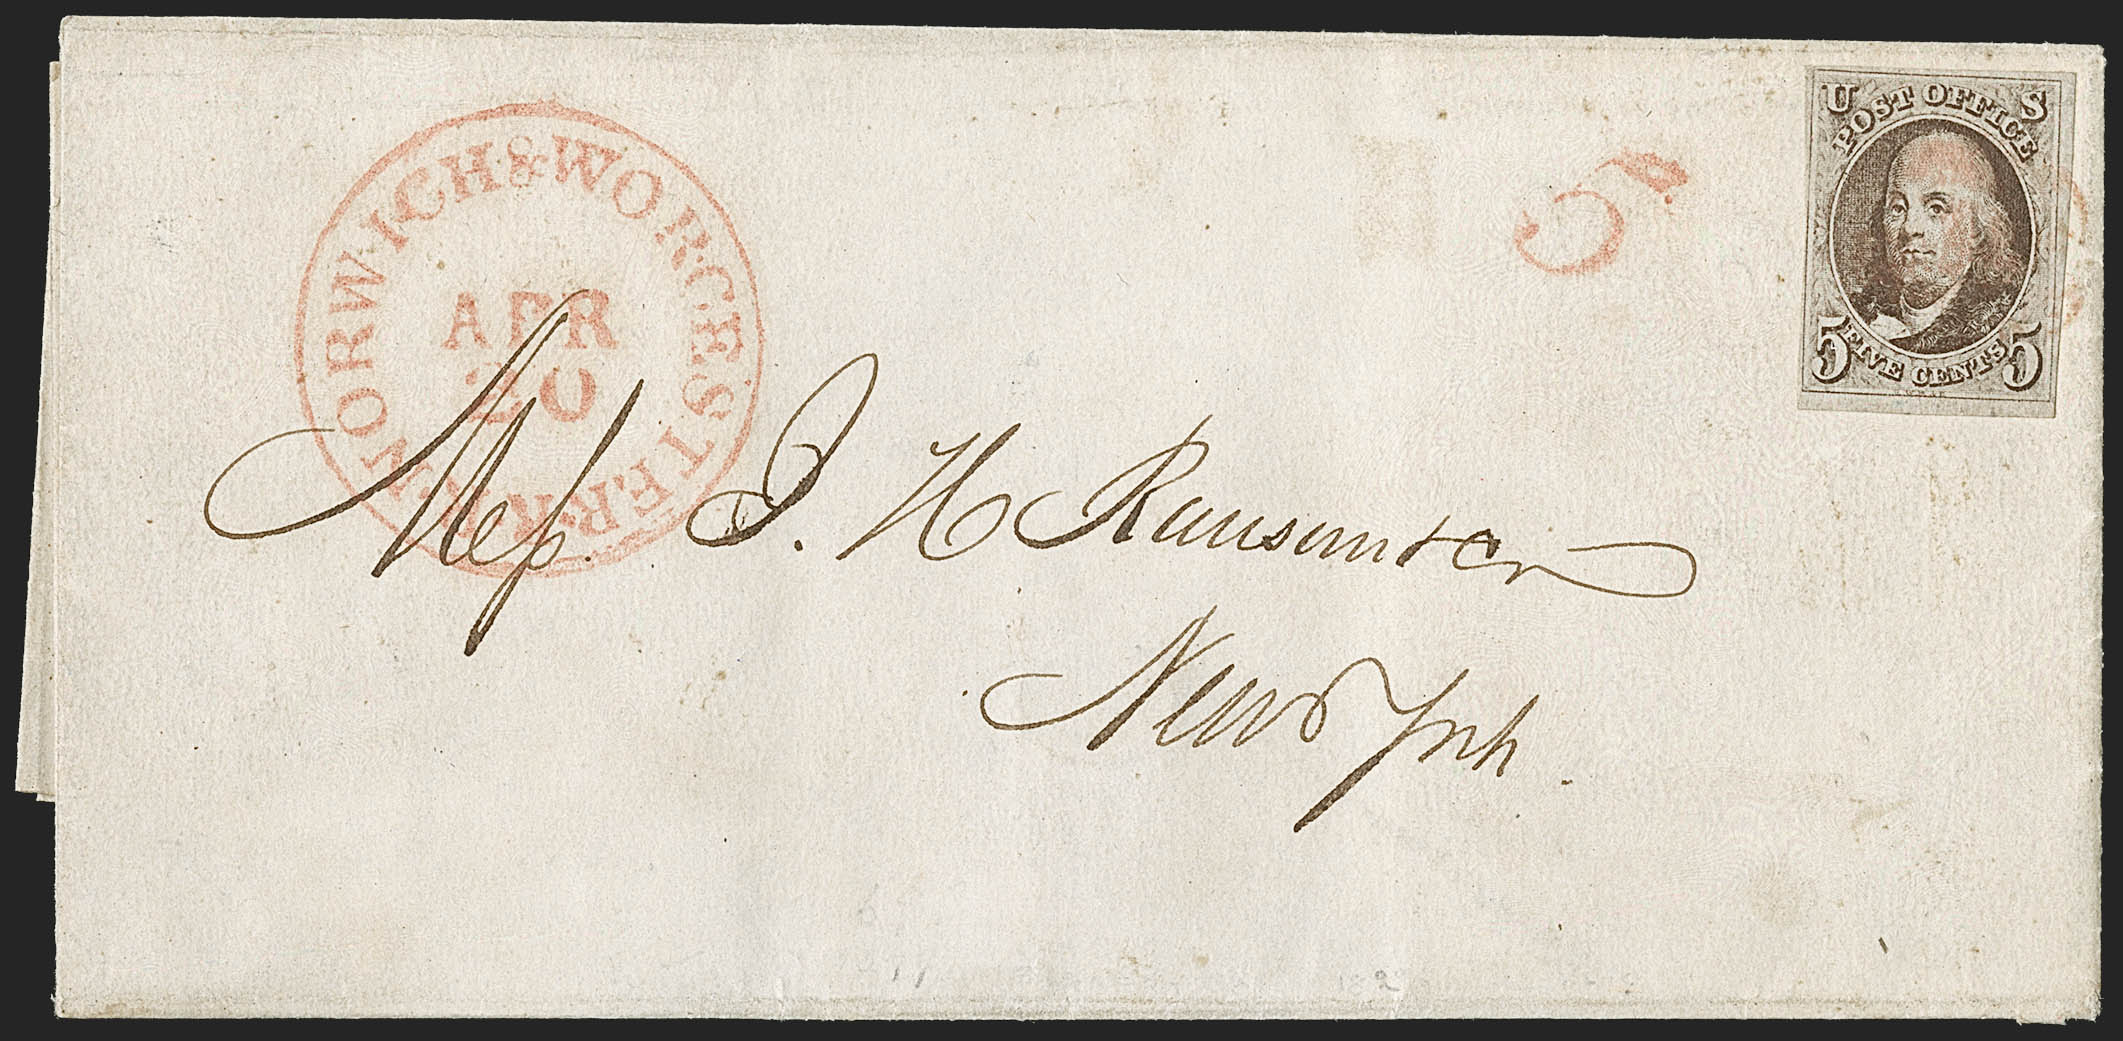 NORWICH & WORCESTER. R.R.
APR
20
5
U S
POST OFFICE
5 FIVE CENTS 5
Mess. J. H Ransom & Co
New York.